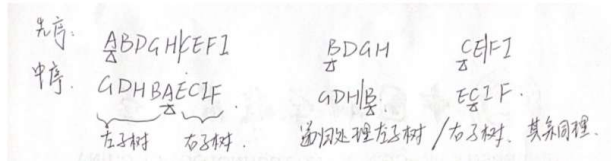 先序: ABDGH|CEFI BDGH CE|FI
中序. GDHBAECIF. GDH|B. ECIF.
左子树 右子树. 递归处理左子树/右子树. 其余同理.